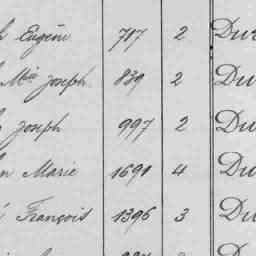 Eugène 717 2 Du
Mie Joseph 839 2 Du
Joseph 997 2 Du
Marie 1691 4 Du
François 1396 3 Du